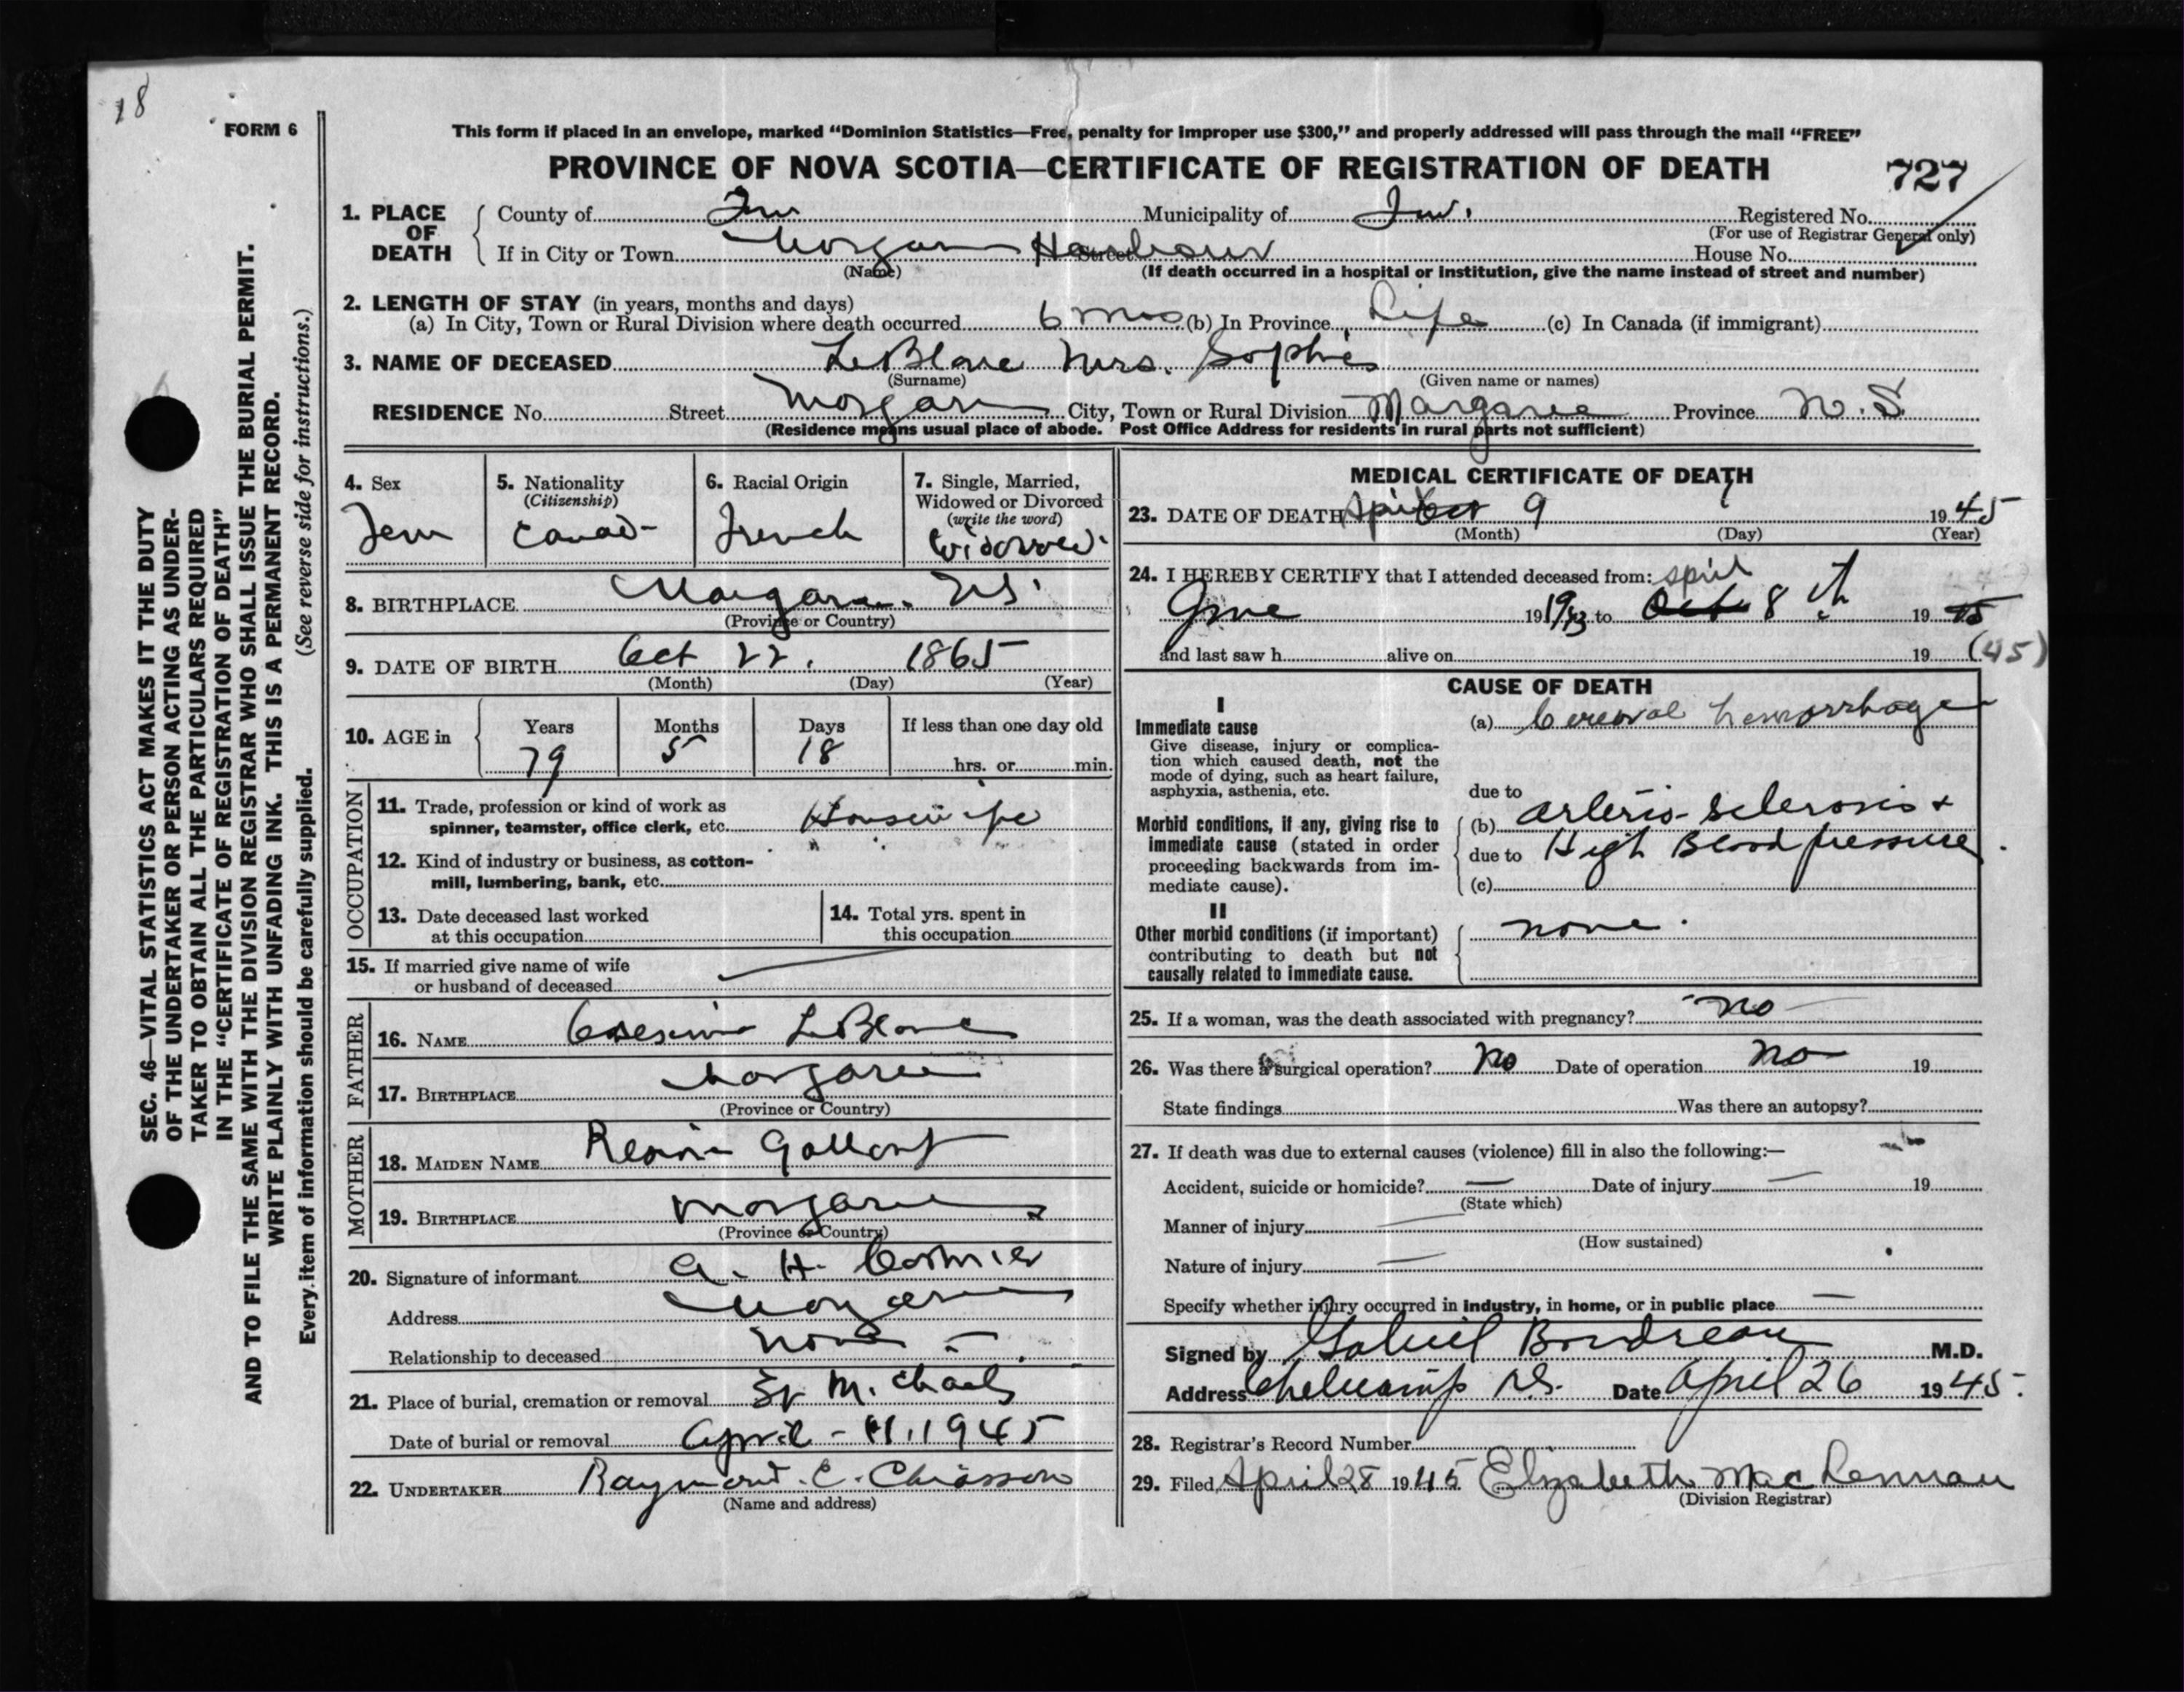 18
FORM 6
This form if placed in an envelope, marked “Dominion Statistics—Free, penalty for improper use $300,” and properly addressed will pass through the mail “FREE”
PROVINCE OF NOVA SCOTIA—CERTIFICATE OF REGISTRATION OF DEATH
727
1. PLACE OF DEATH
County of Inv Municipality of Inv. Registered No.
(For use of Registrar General only)
If in City or Town Margaree Harbour Street House No.
(Name) (If death occurred in a hospital or institution, give the name instead of street and number)
2. LENGTH OF STAY (in years, months and days)
(a) In City, Town or Rural Division where death occurred 6 mos (b) In Province Life (c) In Canada (if immigrant)
3. NAME OF DECEASED LeBlanc Mrs. Sophie
(Surname) (Given name or names)
RESIDENCE No. Street Margaree City, Town or Rural Division Margaree Province N. S.
(Residence means usual place of abode. Post Office Address for residents in rural parts not sufficient)
4. Sex
Fem
5. Nationality
(Citizenship)
Canad-
6. Racial Origin
French
7. Single, Married,
Widowed or Divorced
(write the word)
Widowed.
8. BIRTHPLACE Margaree. N.S.
(Province or Country)
9. DATE OF BIRTH Oct 22. 1865
(Month) (Day) (Year)
10. AGE in
Years Months Days If less than one day old
79 5 18 hrs. or min.
OCCUPATION
11. Trade, profession or kind of work as
spinner, teamster, office clerk, etc. Housewife
12. Kind of industry or business, as cotton-
mill, lumbering, bank, etc. " " "
13. Date deceased last worked
at this occupation
14. Total yrs. spent in
this occupation
15. If married give name of wife
or husband of deceased
FATHER
16. NAME LeBlanc
17. BIRTHPLACE Margaree
(Province or Country)
MOTHER
18. MAIDEN NAME Gallant
19. BIRTHPLACE Margaree
(Province or Country)
20. Signature of informant A. H. Cormier
Address Margaree
Relationship to deceased None
21. Place of burial, cremation or removal St Michaels
Date of burial or removal April - 11. 1945
22. UNDERTAKER Raymond. E. Chiasson
(Name and address)
MEDICAL CERTIFICATE OF DEATH
23. DATE OF DEATH April Oct 9 1945
(Month) (Day) (Year)
24. I HEREBY CERTIFY that I attended deceased from: April
June 191943 to Oct 8 th 19 45
and last saw h alive on 19 (45)
CAUSE OF DEATH
I
Immediate cause
Give disease, injury or complica-
tion which caused death, not the
mode of dying, such as heart failure,
asphyxia, asthenia, etc.
(a) Cerebral hemorrhage
due to
Morbid conditions, if any, giving rise to
immediate cause (stated in order
proceeding backwards from im-
mediate cause).
(b) arterio-sclerosis +
due to High Blood pressure.
(c)
II
Other morbid conditions (if important)
contributing to death but not
causally related to immediate cause.
none.
25. If a woman, was the death associated with pregnancy? no
26. Was there a surgical operation? No Date of operation no 19
State findings Was there an autopsy?
27. If death was due to external causes (violence) fill in also the following:—
Accident, suicide or homicide? — Date of injury — 19
(State which)
Manner of injury —
(How sustained)
Nature of injury —
Specify whether injury occurred in industry, in home, or in public place —
Signed by Gabriel Boudreau M.D.
Address Cheticamp N.S. Date April 26 1945.
28. Registrar's Record Number
29. Filed April 28 1945 Elizabeth MacLennan
(Division Registrar)
SEC. 46—VITAL STATISTICS ACT MAKES IT THE DUTY
OF THE UNDERTAKER OR PERSON ACTING AS UNDER-
TAKER TO OBTAIN ALL THE PARTICULARS REQUIRED
IN THE “CERTIFICATE OF REGISTRATION OF DEATH”
AND TO FILE THE SAME WITH THE DIVISION REGISTRAR WHO SHALL ISSUE THE BURIAL PERMIT.
WRITE PLAINLY WITH UNFADING INK. THIS IS A PERMANENT RECORD.
Every item of information should be carefully supplied. (See reverse side for instructions.)